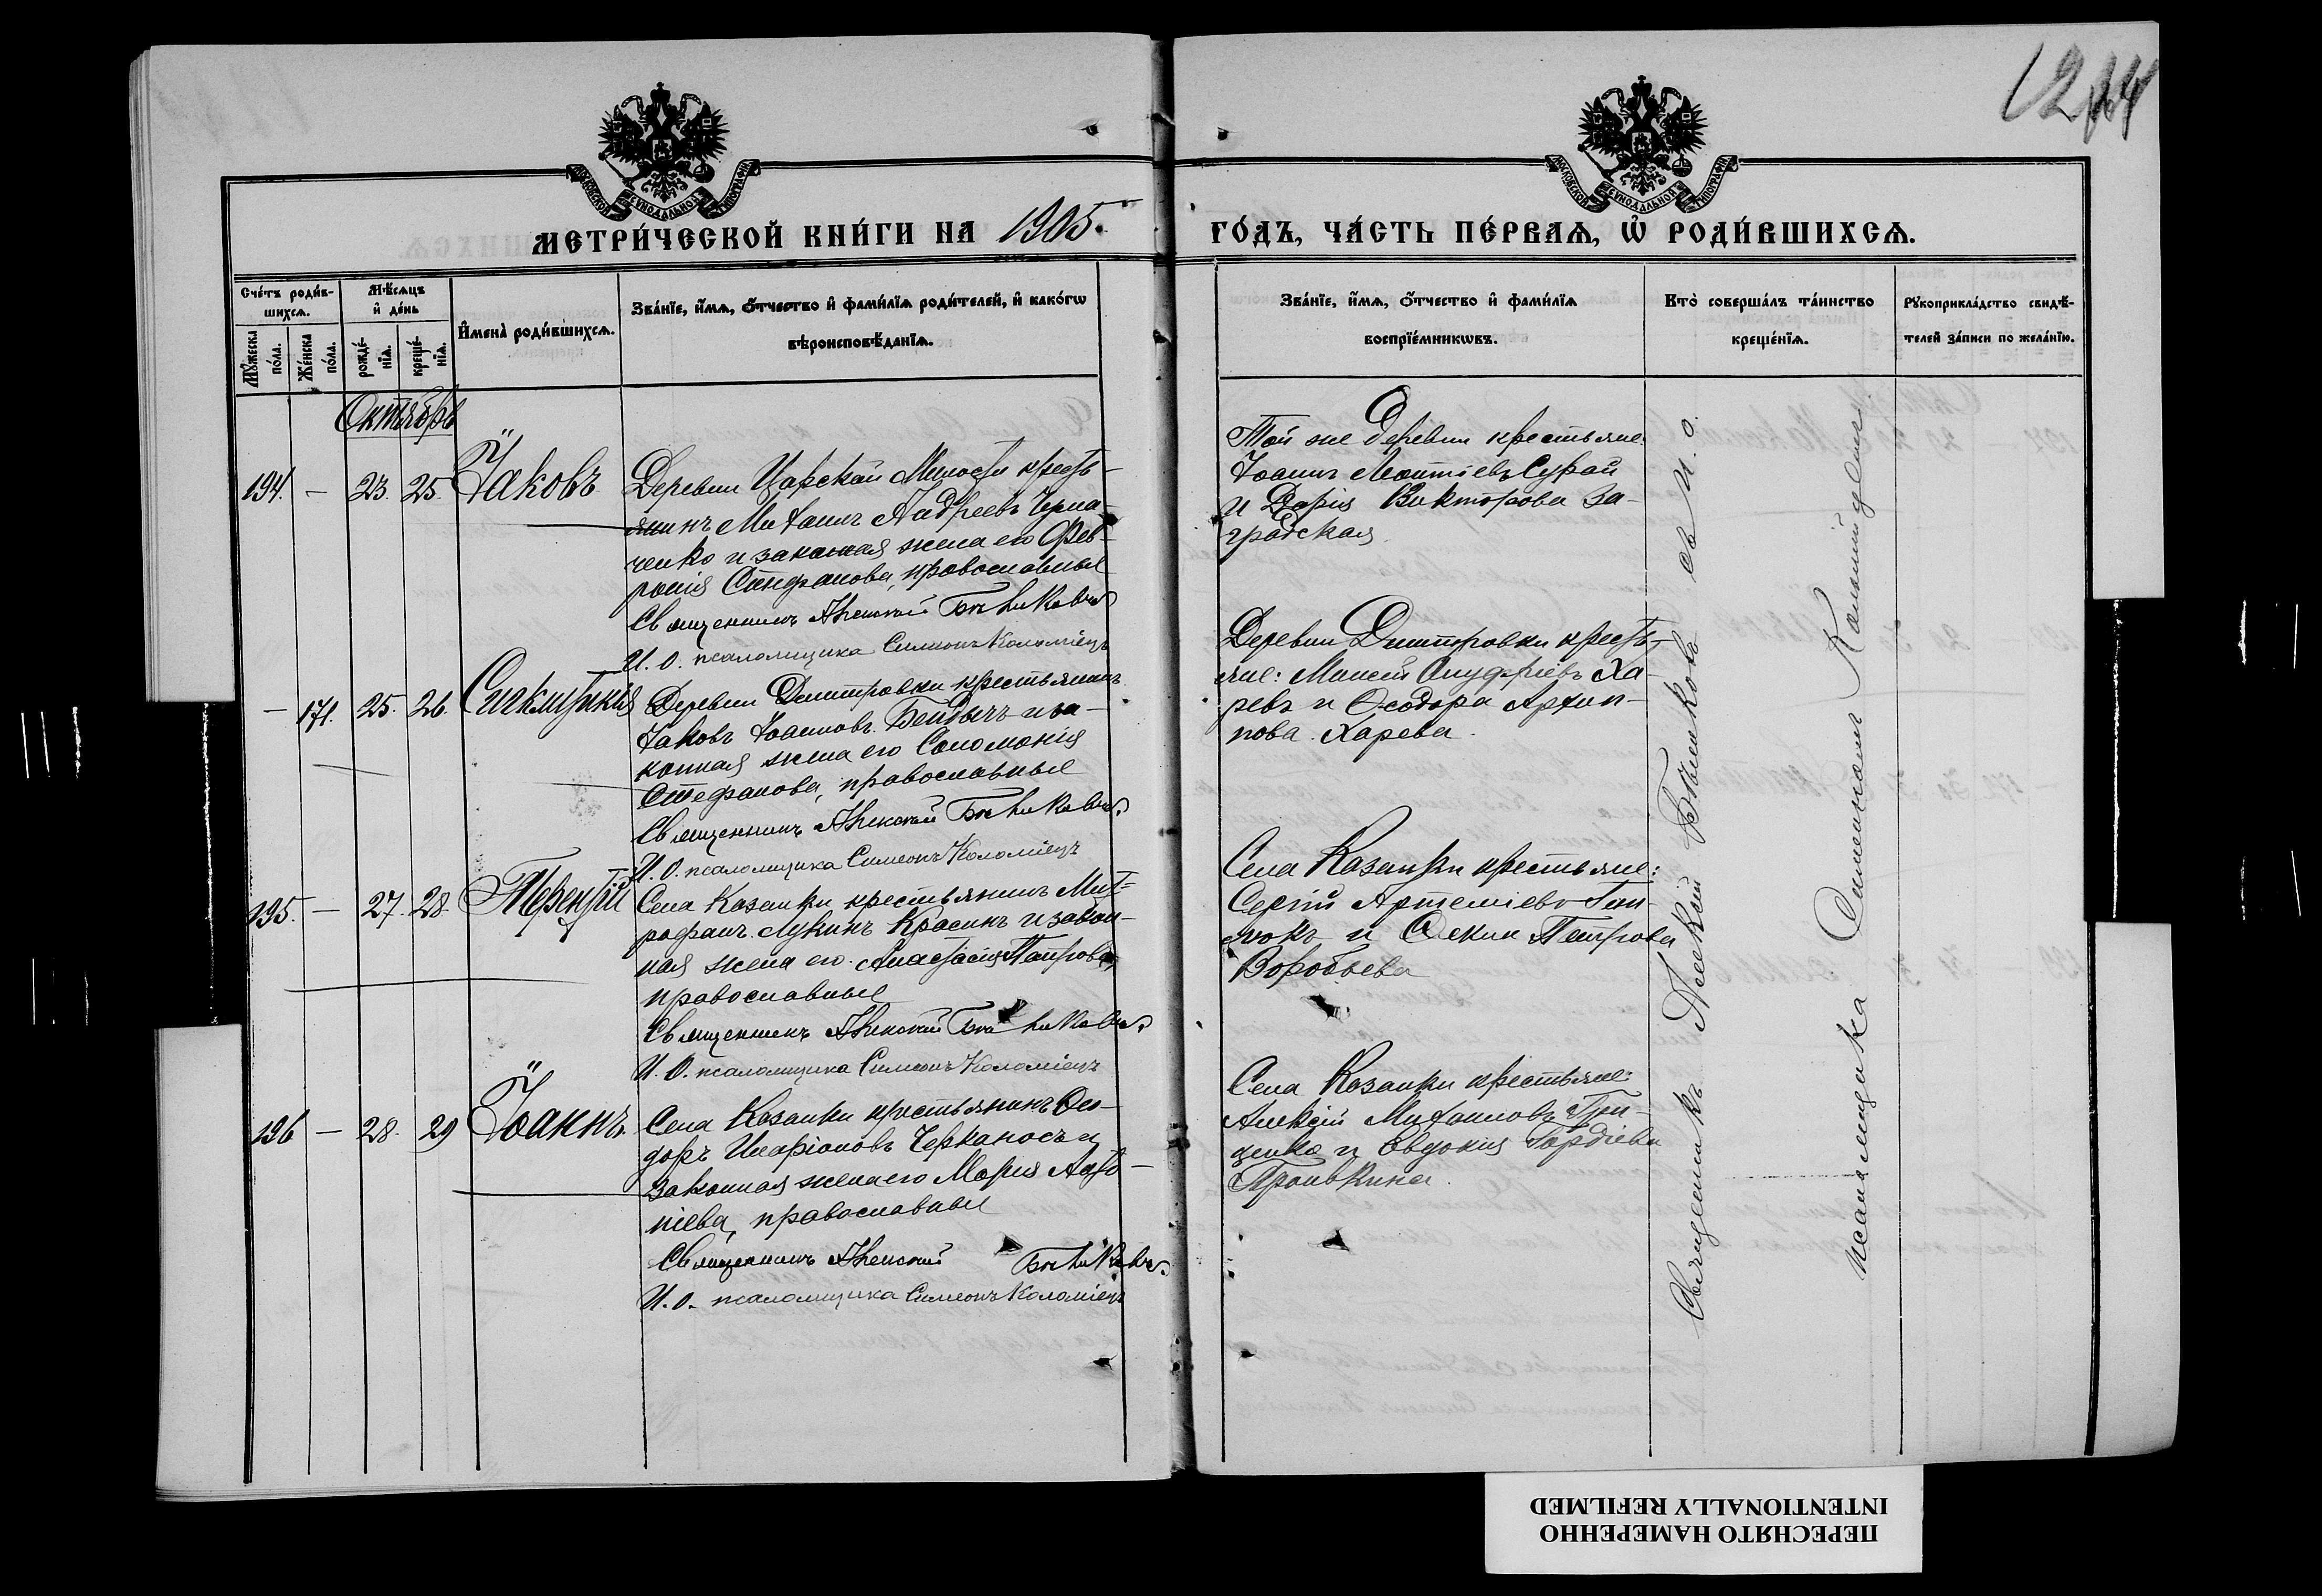 1264
МОСКОВСКОЙ СѴНОДАЛЬНОЙ ТИПОГРАФІИ
МОСКОВСКОЙ СѴНОДАЛЬНОЙ ТИПОГРАФІИ
МЕТРИ́ЧЕСКОЙ КНИ́ГИ НА 1905.
ГО́ДЪ, ЧА́СТЬ ПЕ́РВАѦ, Ѽ РОДИ́ВШИХСѦ.
Сче́тъ роди́в-
шихсѧ.
Мꙋжеска по́ла.
Же́нска по́ла.
Мѣ́сѧцъ
и҆ де́нь
рожде́-
нїѧ.
креще́-
нїѧ.
И҆мена̀ роди́вшихсѧ.
Зва́нїе, и҆́мѧ, ѻ҆́тчество и҆ фами́лїѧ роди́телей, и҆ како́гѡ
вѣроисповѣ́данїѧ.
Зва́нїе, и҆́мѧ, ѻ҆́тчество и҆ фами́лїѧ
воспрїе́мникѡвъ.
Кто̀ соверша́лъ та́инство
креще́нїѧ.
Рꙋкоприкла́дство свидѣ́-
телей за́писи по жела́нїю.
Октябрь
194. — 23. 25. Іаковъ
Деревни Царской Милости кресть-
янинъ Михаилъ Андреевъ Черна-
ченко и законная жена его Фев-
ронія Стефанова, православные
Священникъ Алексей Бѣликовъ
И. О. псаломщика Симеонъ Коломіецъ
Той же деревни крестьяне:
Іоаннъ Сурай
и Дарія Викторова За-
градская
— 171. 25. 26. Синклитикія
Деревни Дмитровки крестьянинъ
Іаковъ Іоанновъ Бендычъ и за-
конная жена его Соломонія
Стефанова, православные
Священникъ Алексей Бѣликовъ
И. О. псаломщика Симеонъ Коломіецъ
Деревни Дмитровки кресть-
яне: Моисей Онуфріевъ Ха-
ревъ и Ѳеодора Архип-
пова Харева.
195. — 27. 28. Терентій
Села Казанки крестьянинъ Мит-
рофанъ Лукинъ Красинъ и закон-
ная жена его Анастасія Петрова,
православные
Священникъ Алексей Бѣликовъ
И. О. псаломщика Симеонъ Коломіецъ
Села Казанки крестьяне:
Сергій Артеміевъ Гай-
докъ и Ѳекла Петрова
Воробьева
196 — 28. 29 Іоаннъ.
Села Казанки крестьянинъ Ѳео-
доръ Иларіоновъ Черканосъ и
законная жена его Марія
православные
Священникъ Алексей Бѣликовъ
И. О. псаломщика Симеонъ Коломіецъ
Села Казанки крестьяне:
Алексій Михаиловъ Гри-
ценко и Евдокія Гордіева
Пронькина.
Священникъ Алексей Бѣликовъ съ И. О.
псаломщика Симеономъ Коломійцемъ
ПЕРЕСНЯТО НАМЕРЕННО
INTENTIONALLY REFILMED